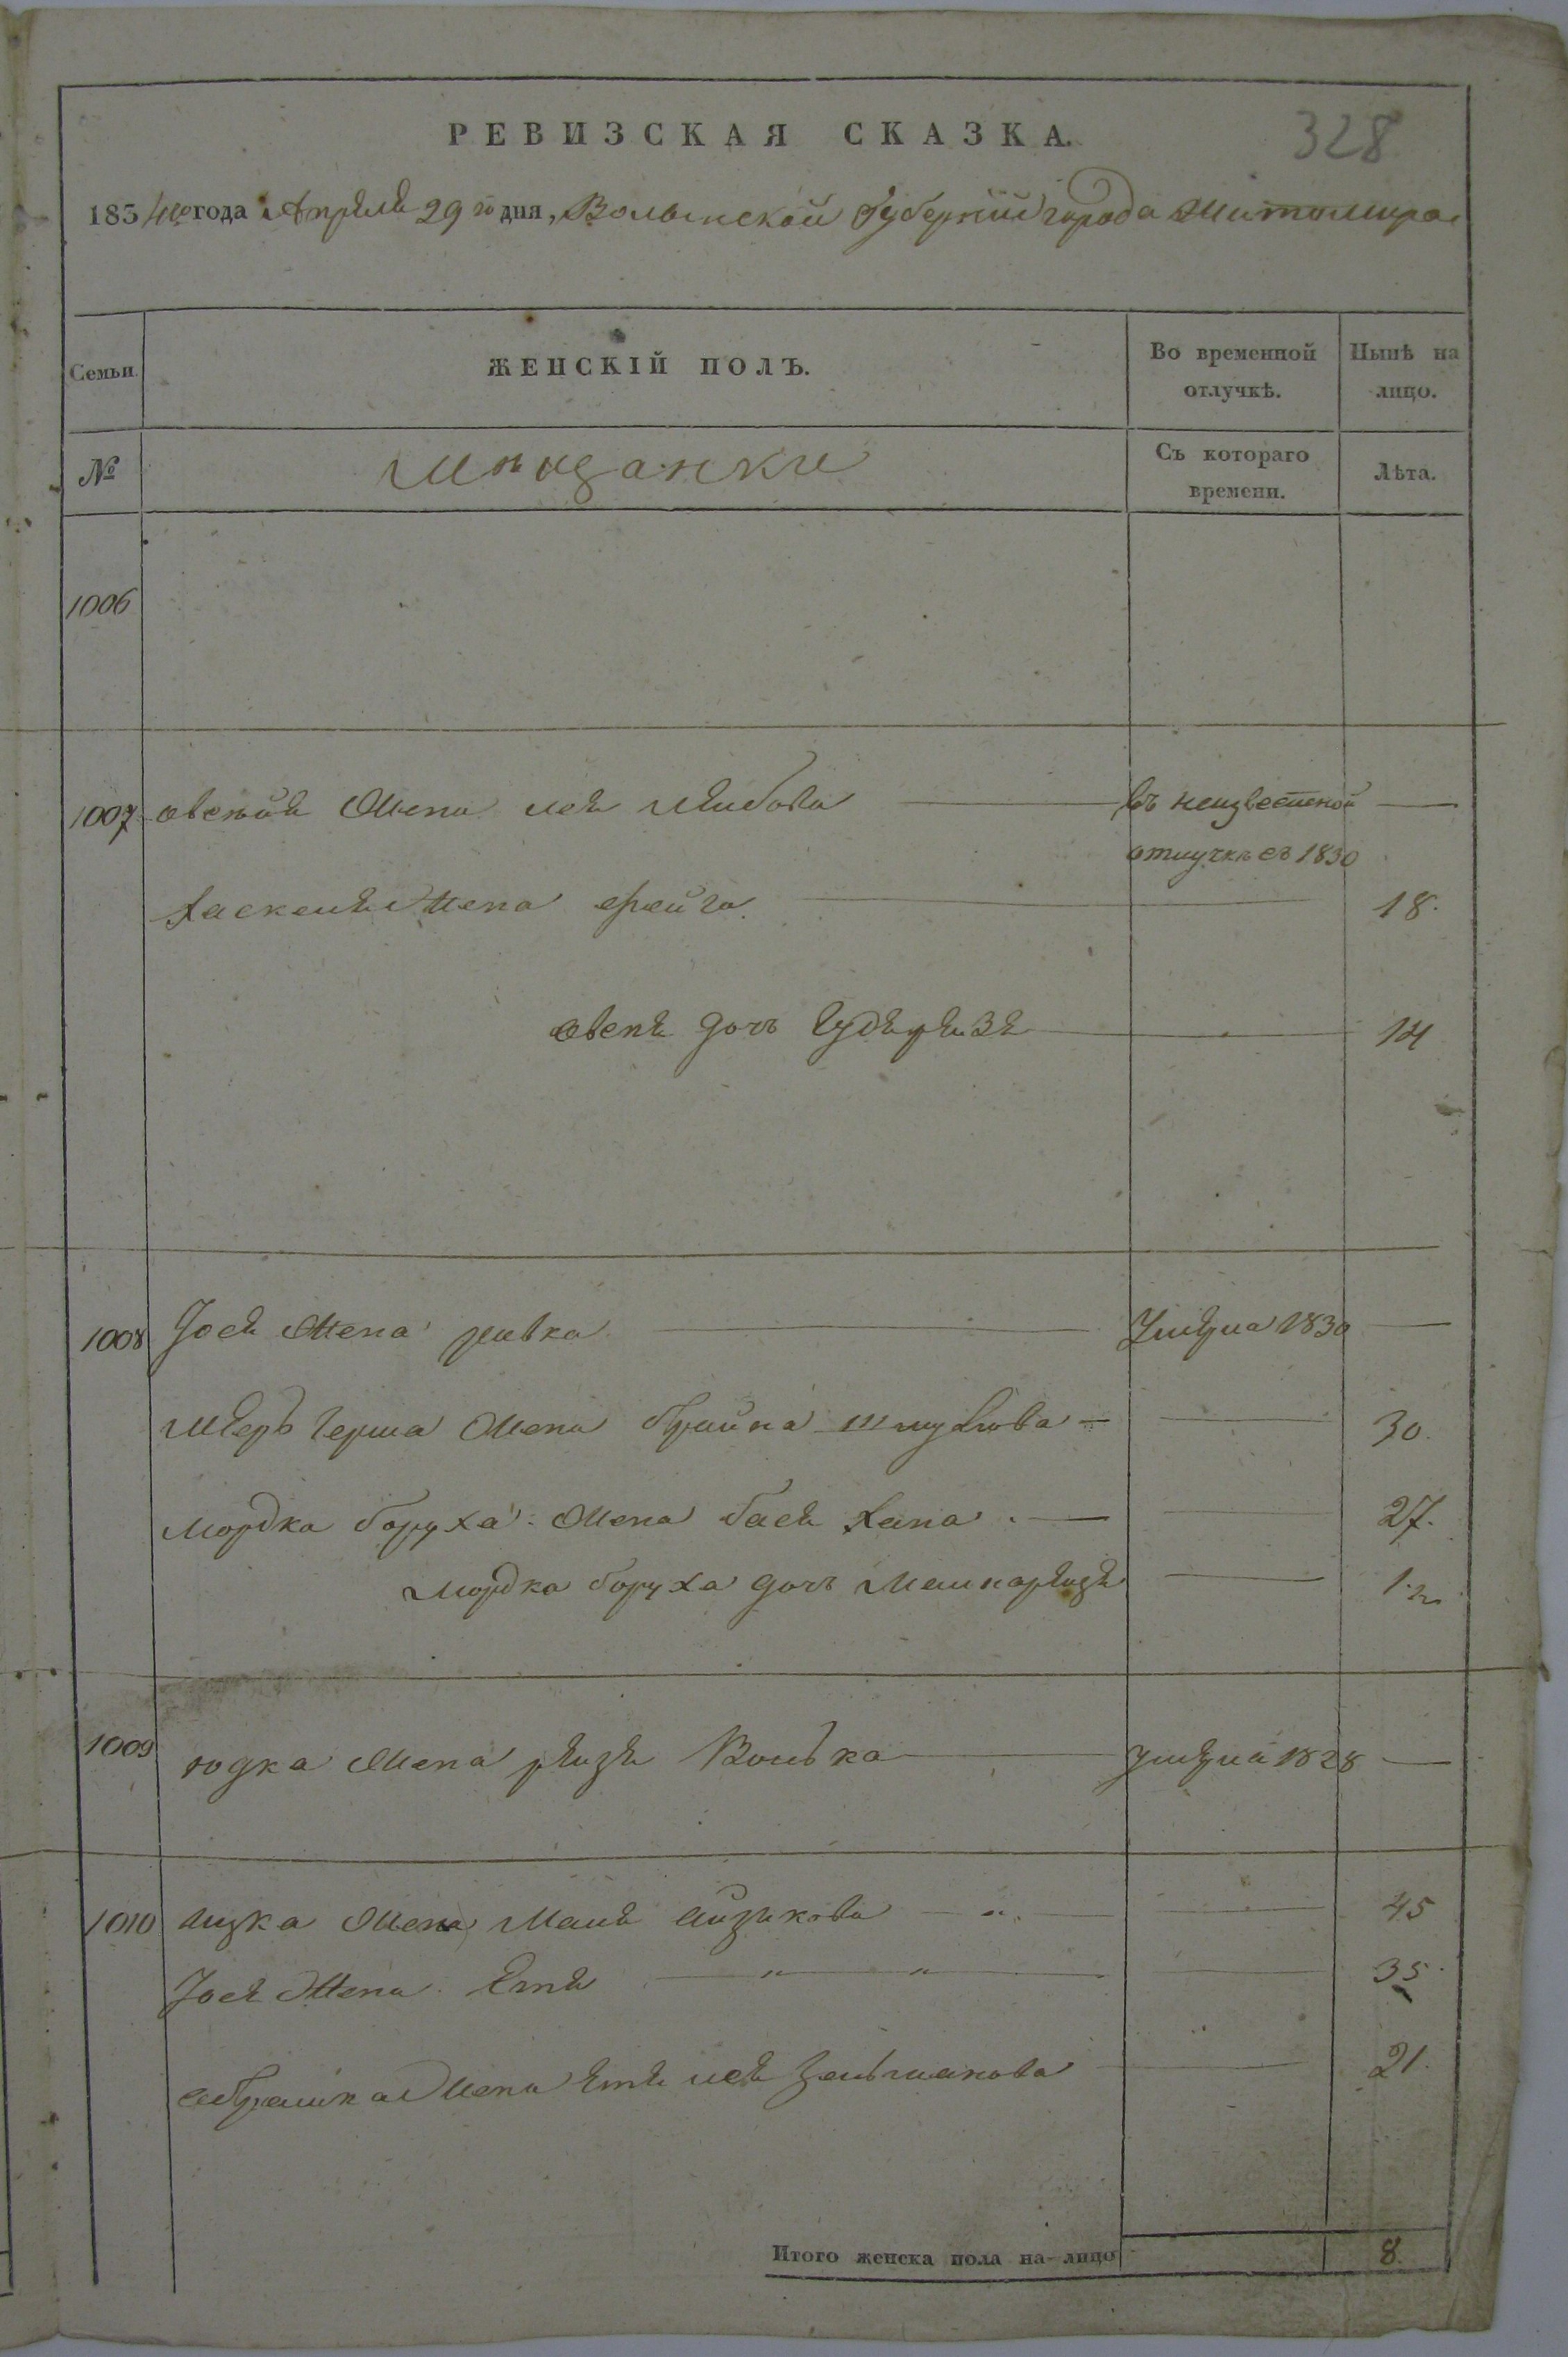 РЕВИЗСКАЯ СКАЗКА.
328
1834го года Апреля 29го дня, Волынской Губернии города Житомира
Семьи.
ЖЕНСКІЙ ПОЛЪ.
Во временной отлучкѣ.
Нынѣ на лицо.
№
мѣщанки
Съ котораго времени.
Лѣта.
1006
1007 овсѣя жена лея лейбова въ неизвестной
отлучкѣ съ 1830
хаскеля жена фейга 18.
овсея дочь 14
1008 Іося жена ривка умерла 1830
мер герша жена брайна шмулева 30.
мордка боруха жена бася хана 27.
мордка боруха дочь 1½
1009 юдка жена рейзя Волька умерла 1828
1010 лизка жена Маля айзикова 45
Іося жена Етя 35.
абрамка жена етя лея зельманова 21.
Итого женска пола на-лицо 8.